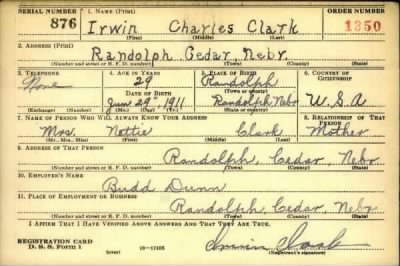 SERIAL NUMBER 1. NAME (Print) ORDER NUMBER
876 Irwin Charles Clark 1350
(First) (Middle) (Last)
2. ADDRESS (Print)
Randolph Cedar Nebr.
(Number and street or R. F. D. number) (Town) (County) (State)
3. TELEPHONE 4. AGE IN YEARS 5. PLACE OF BIRTH 6. COUNTRY OF CITIZENSHIP
None 29 Randolph
DATE OF BIRTH (Town or county)
June 29, 1911 Randolph Nebr U.S.A
(Exchange) (Number) (Mo.) (Day) (Yr.) (State or country)
7. NAME OF PERSON WHO WILL ALWAYS KNOW YOUR ADDRESS 8. RELATIONSHIP OF THAT PERSON
Mrs. Nettie Clark Mother
(Mr., Mrs., Miss) (First) (Middle) (Last)
9. ADDRESS OF THAT PERSON
Randolph, Cedar, Nebr
(Number and street or R. F. D. number) (Town) (County) (State)
10. EMPLOYER'S NAME
Budd Dunn
11. PLACE OF EMPLOYMENT OR BUSINESS
Randolph, Cedar, Nebr
(Number and street or R. F. D. number) (Town) (County) (State)
I AFFIRM THAT I HAVE VERIFIED ABOVE ANSWERS AND THAT THEY ARE TRUE.
REGISTRATION CARD
D. S. S. Form 1 (over) 16—17105 Irwin Clark
(Registrant's signature)